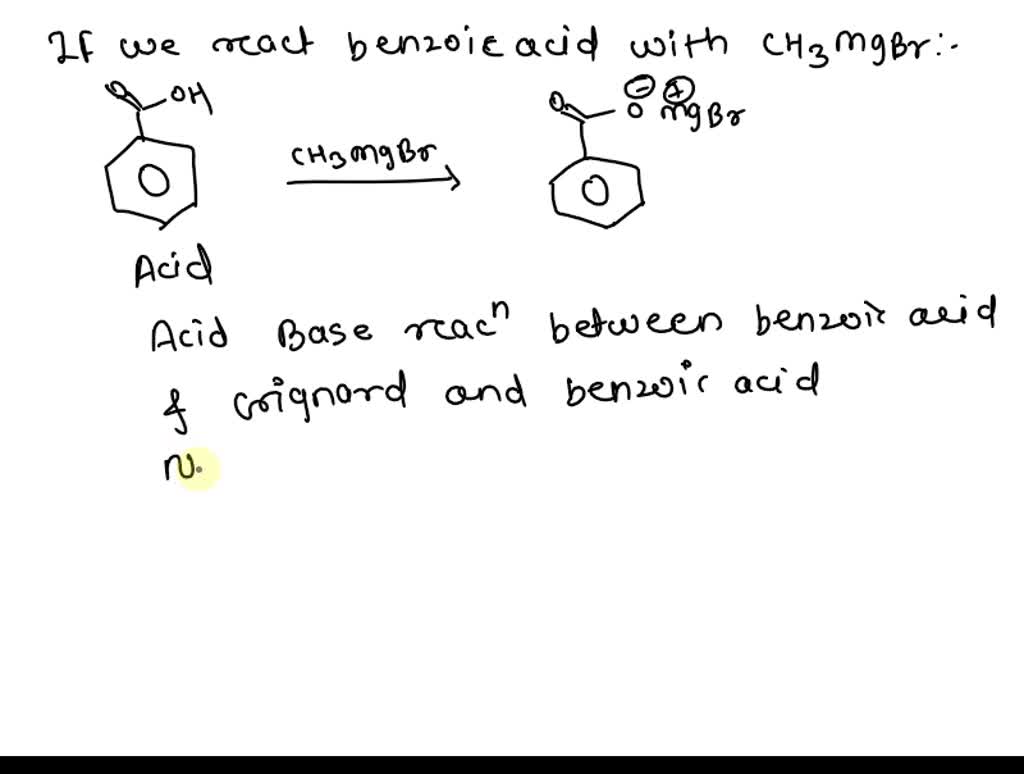 If we react benzoic acid with CH3MgBr:-
O OH
O O ⊖ ⊕ MgBr
CH3MgBr
Acid
Acid Base reacn between benzoic acid
& Grignard and benzoic acid
N.